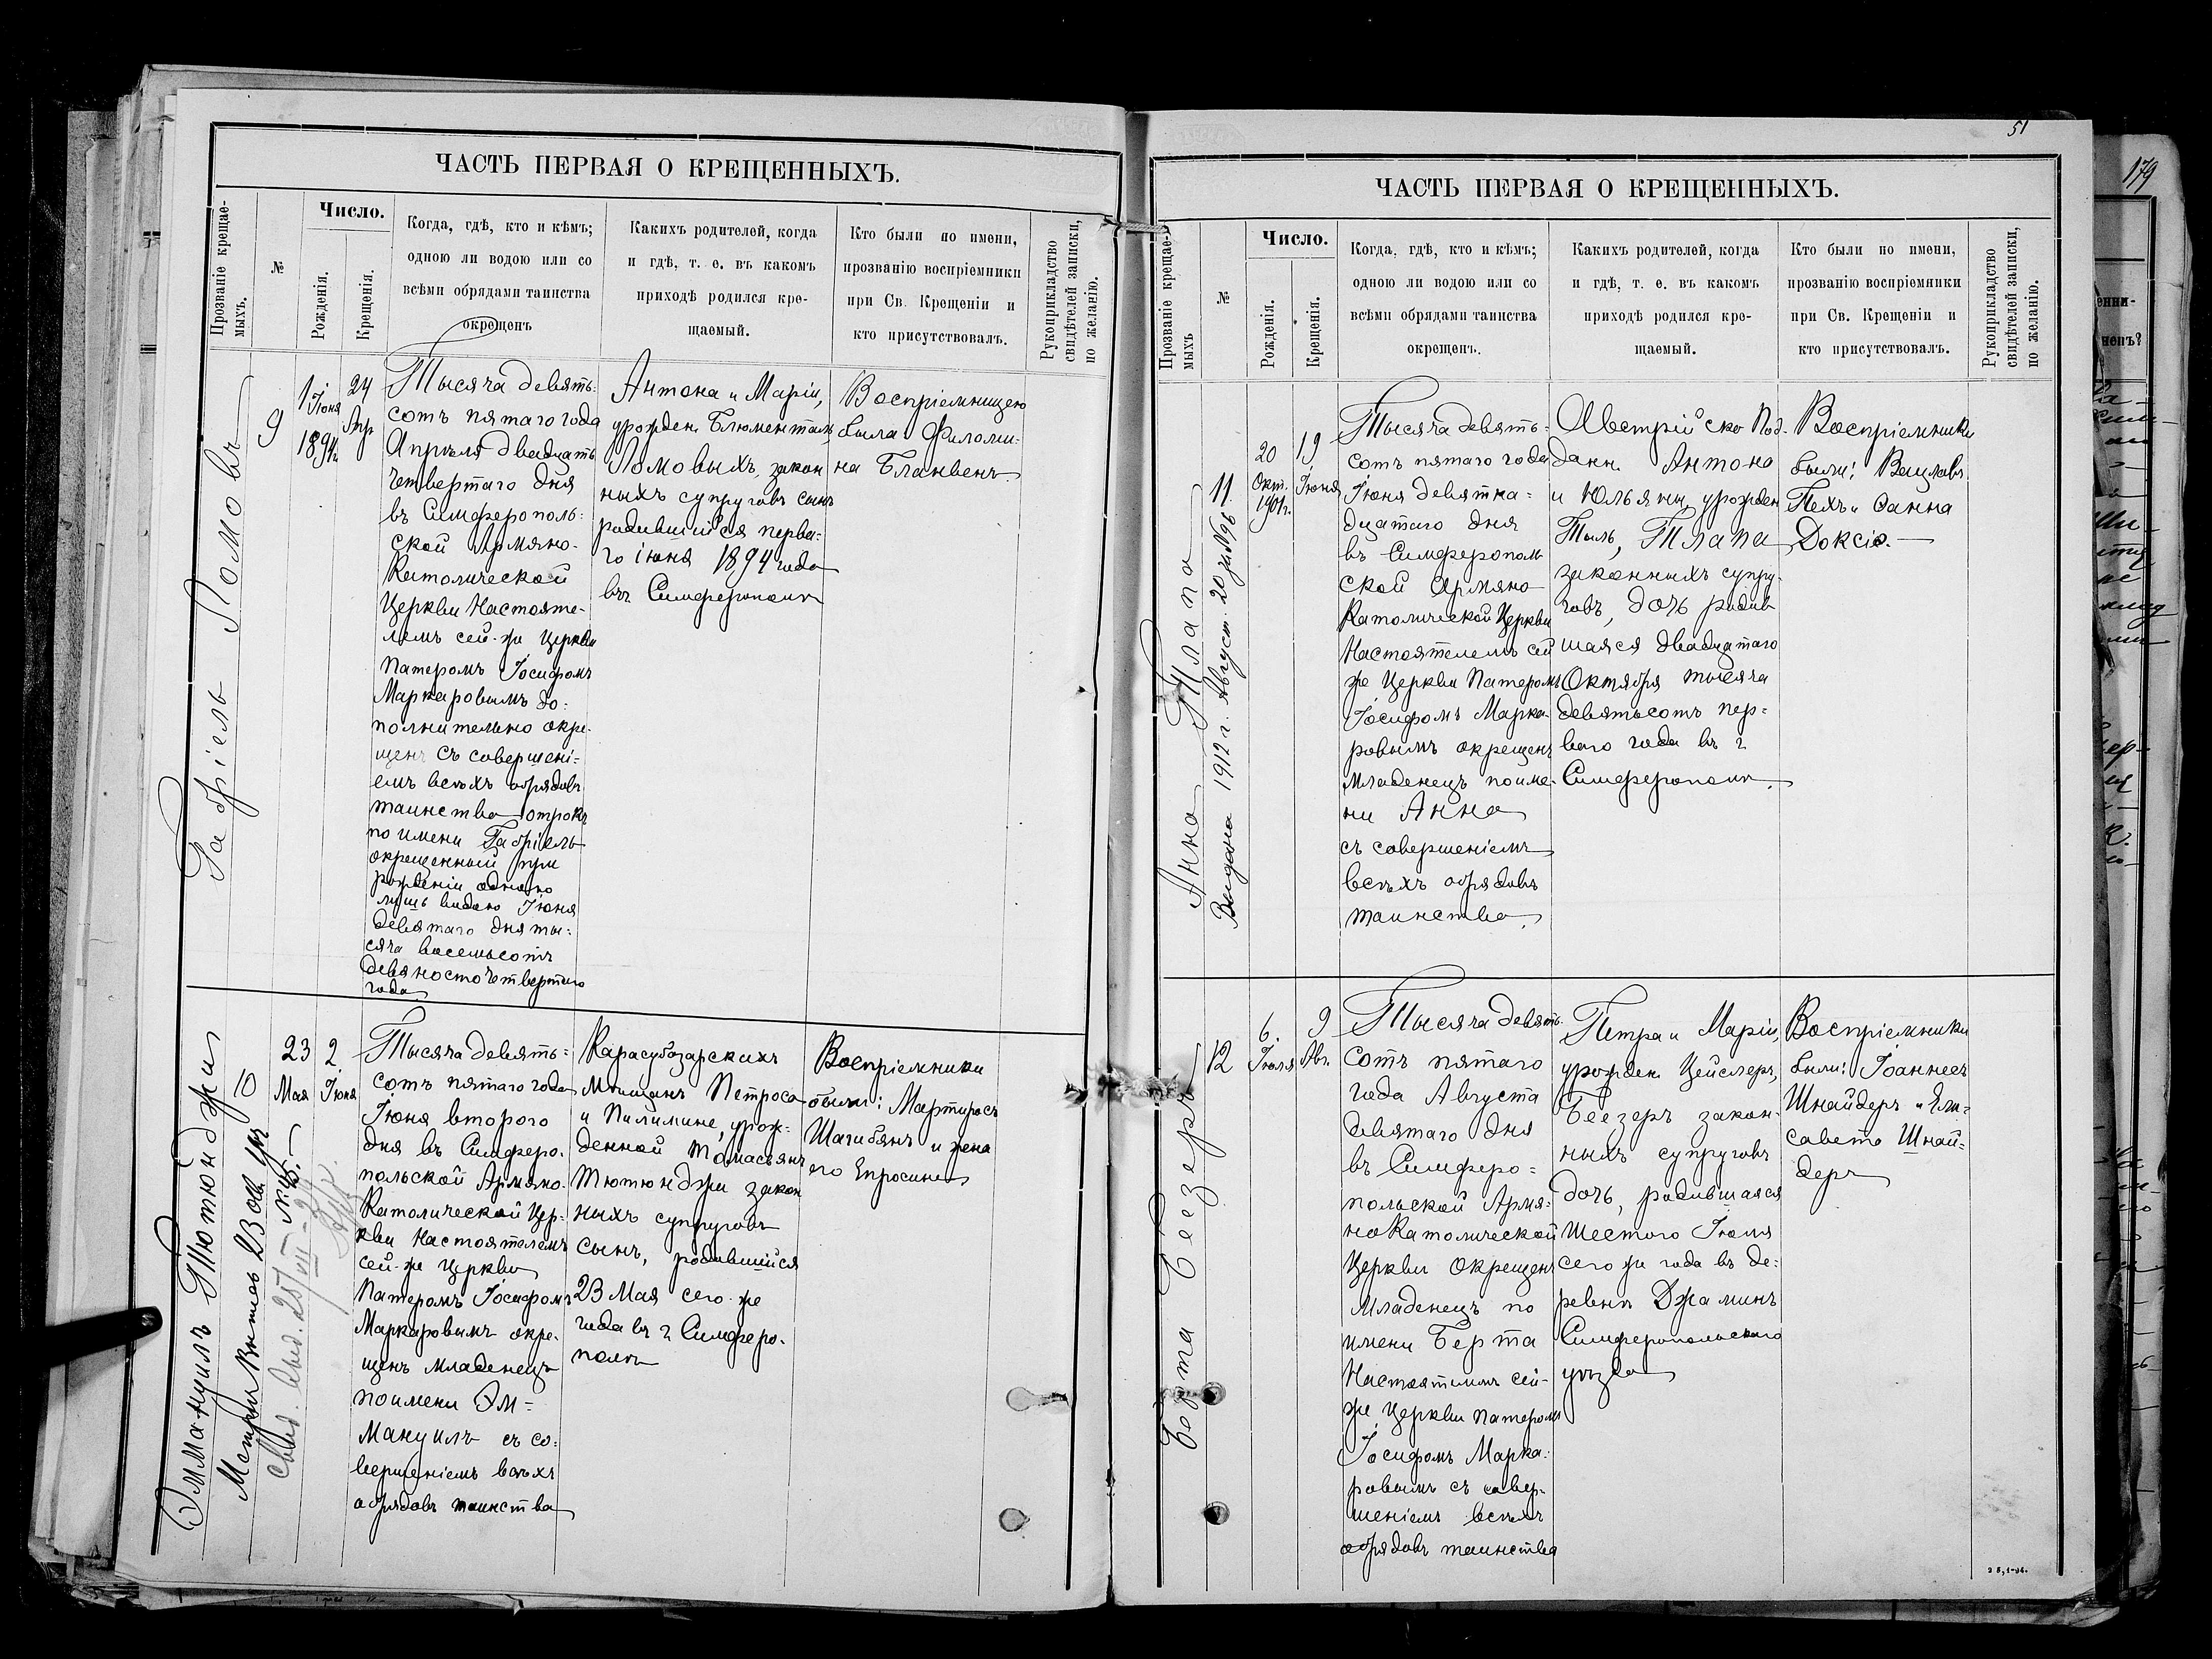 ЧАСТЬ ПЕРВАЯ О КРЕЩЕННЫХЪ.
Прозваніе крещае-
мыхъ.
№
Число.
Рожденія.
Крещенія.
Когда, гдѣ, кто и кѣмъ;
одною ли водою или со
всѣми обрядами таинства
окрещенъ
Какихъ родителей, когда
и гдѣ, т. е. въ какомъ
приходѣ родился кре-
щаемый.
Кто были по имени,
прозванію воспріемники
при Св. Крещеніи и
кто присутствовалъ.
Рукоприкладство
свидѣтелей записки,
по желанію.
Габріель Помовъ
9
1
Іюня
1894 г.
24
Апр
Тысяча девять=
сотъ пятаго года
Апрѣля двадцать
четвертаго дня
въ Симферополь=
ской Армяно-
Католической
Церкви Настояте-
лемъ сей-же Церкви
Патеромъ Іосифомъ
Маркаровымъ до=
полнительно окре-
щенъ съ совершені=
емъ всѣхъ обрядовъ
таинства отрокъ
по имени Габріель
окрещенный при
рожденіи однако
лишь водою Іюня
девятаго дня ты=
сяча восемьсотъ
девяносто четвертаго
года
Антона и Маріи,
урожден. Блюменталь
Помовыхъ, закон
ныхъ супруговъ сынъ
родившійся перва=
го іюня 1894 года
въ Симферополѣ
Воспріемницею
была Филоми=
на Бланвенъ
Эммануилъ Тютюнджи
10
23
Мая
2
Іюня
Тысяча девять=
сотъ пятаго года
Іюня второго
дня въ Симферо-
польской Армяно-
Католической Цер-
кви Настоятелемъ
сей-же Церкви
Патеромъ Іосифомъ
Маркаровымъ окре-
щенъ младенецъ
по имени Эм=
мануилъ съ со=
вершеніемъ всѣхъ
обрядовъ таинства
Карасубазарскихъ
мѣщанъ Петроса
и Пилимине, урож=
денной Томасьянъ
Тютюнджи закон
ныхъ супруговъ
сынъ, родившійся
23 Мая сего-же
года въ г. Симферо-
полѣ
Воспріемники
были: Мартиросъ
Шагибянъ и жена
его Епросина
51
ЧАСТЬ ПЕРВАЯ О КРЕЩЕННЫХЪ.
Прозваніе крещае-
мыхъ
№
Число.
Рожденія.
Крещенія.
Когда, гдѣ, кто и кѣмъ;
одною ли водою или со
всѣми обрядами таинства
окрещенъ.
Какихъ родителей, когда
и гдѣ, т. е. въ какомъ
приходѣ родился кре-
щаемый.
Кто были по имени,
прозванію воспріемники
при Св. Крещеніи и
кто присутствовалъ.
Рукоприкладство
свидѣтелей записки,
по желанію.
Анна Тлапа
Выдана 1912 г. Август 20 за № 96
11.
20
Окт.
1901 г.
19
Іюня
Тысяча девять=
сотъ пятаго года
Іюня девятна=
дцатаго дня
въ Симферополь
ской Армяно
Католической Церкви
Настоятелемъ сей
же Церкви Патеромъ
Іосифомъ Марка-
ровымъ окрещенъ
младенецъ по име-
ни Анна
съ совершеніемъ
всѣхъ обрядовъ
таинства.
Австрійско Под-
данн. Антона
и Юльяны, урожден
Тыль, Тлапа
законныхъ супру-
говъ, дочь родив
шаяся двадцатаго
Октября тысяча
девятьсотъ пер=
ваго года въ г.
Симферополѣ.
Воспріемники
были: Вацлавъ
Пехъ и Санна
Доксіо.
Берта Беезеръ
12
6.
Іюля
9
Авг.
Тысяча девять
сотъ пятаго
года Августа
девятаго дня
въ Симферо=
польской Армя=
но Католической
Церкви Окрещенъ
Младенецъ по
имени Берта
Настоятелемъ сей-
же Церкви Патеромъ
Іосифомъ Марка=
ровымъ съ совер-
шеніемъ всѣхъ
обрядовъ таинства
Петра и Маріи,
урожден. Цейслеръ,
Беезеръ закон-
ныхъ супруговъ
дочь, родившаяся
Шестого Іюля
сего же года въ де=
ревнѣ Джаминъ
Симферопольскаго
уѣзда
Воспріемники
были: Іоаннесъ
Шнайдеръ и Ели=
савета Шнай=
деръ
179